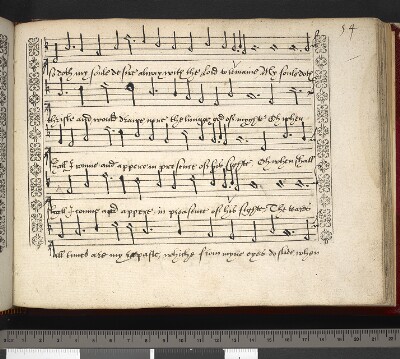 54
So doth my soule desire alway with the lord to remaine My soule doth
thriste and would drawe nere the livinge god of myght Oh when
shall I come and appere in presence of his sight Oh when shall
shall I come and appere in presence of his sight The teares
all times are my repaste, whiche from myne eyes do slide when